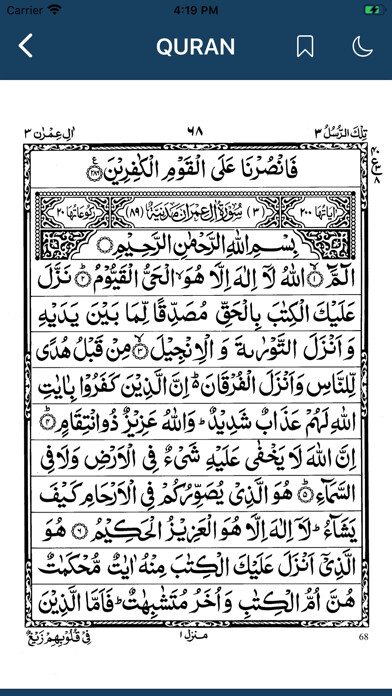 Carrier 4:19 PM
QURAN
اٰلِ عِمْرٰن ٣ ٦٨ تِلْكَ الرُّسُلُ ٣
فَانْصُرْنَا عَلَى الْقَوْمِ الْكٰفِرِيْنَ ۝٢٨٦
اٰيَاتُهَا ٢٠٠ (٣) سُوْرَةُ اٰلِ عِمْرٰنَ مَدَنِيَّةٌ (٨٩) رُكُوْعَاتُهَا ٢٠
بِسْمِ اللّٰهِ الرَّحْمٰنِ الرَّحِيْمِ
الٓمّٓ ۝١ اللّٰهُ لَاۤ اِلٰهَ اِلَّا هُوَ ۙ الْحَىُّ الْقَيُّوْمُ ۝٢ نَزَّلَ
عَلَيْكَ الْكِتٰبَ بِالْحَقِّ مُصَدِّقًا لِّمَا بَيْنَ يَدَيْهِ
وَ اَنْزَلَ التَّوْرٰىةَ وَ الْاِنْجِيْلَ ۝٣ مِنْ قَبْلُ هُدًى
لِّلنَّاسِ وَاَنْزَلَ الْفُرْقَانَ ؕ اِنَّ الَّذِيْنَ كَفَرُوْا بِاٰيٰتِ
اللّٰهِ لَهُمْ عَذَابٌ شَدِيْدٌ ؕ وَاللّٰهُ عَزِيْزٌ ذُوانْتِقَامٍ ۝٤
اِنَّ اللّٰهَ لَا يَخْفٰى عَلَيْهِ شَىْءٌ فِى الْاَرْضِ وَلَا فِى
السَّمَآءِ ۝٥ هُوَ الَّذِىْ يُصَوِّرُكُمْ فِى الْاَرْحَامِ كَيْفَ
يَشَآءُ ؕ لَاۤ اِلٰهَ اِلَّا هُوَ الْعَزِيْزُ الْحَكِيْمُ ۝٦ هُوَ
الَّذِىْۤ اَنْزَلَ عَلَيْكَ الْكِتٰبَ مِنْهُ اٰيٰتٌ مُّحْكَمٰتٌ
هُنَّ اُمُّ الْكِتٰبِ وَاُخَرُ مُتَشٰبِهٰتٌ ؕ فَاَمَّا الَّذِيْنَ
فِىْ قُلُوْبِهِمْ زَيْغٌ منزل ١ 68